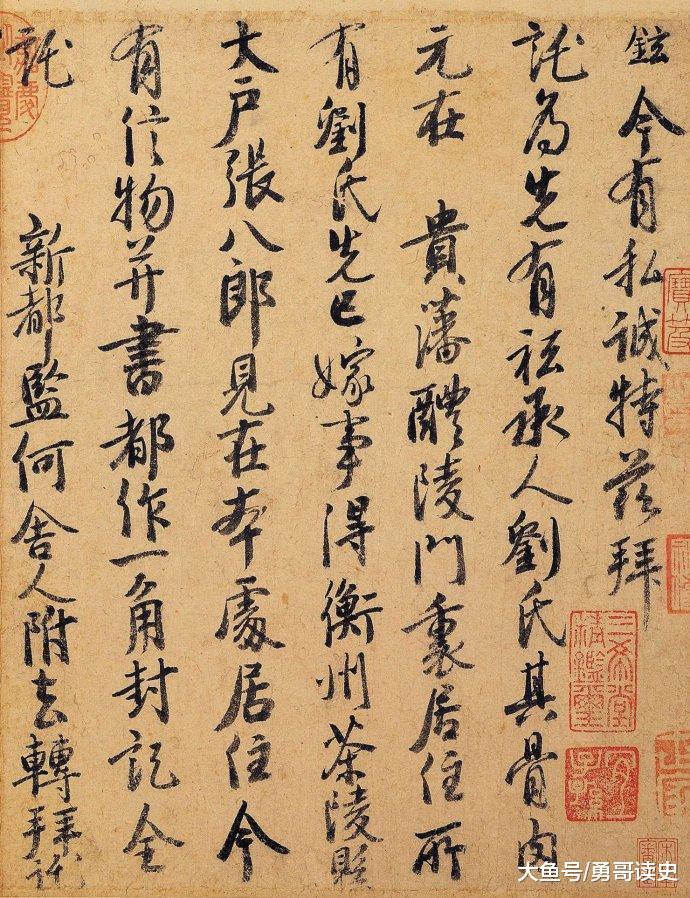 鉉今有私誠特茲拜
託為先有祗承人劉氏其骨肉
元在 貴藩醴陵門裏居住所
有劉氏先已嫁事得衡州茶陵縣
大戶張八郎見在本處居住今
有信物并書都作一角封記全
託
新都監何舍人附去轉拜託
三希堂
精鑑璽
大鱼号/勇哥读史